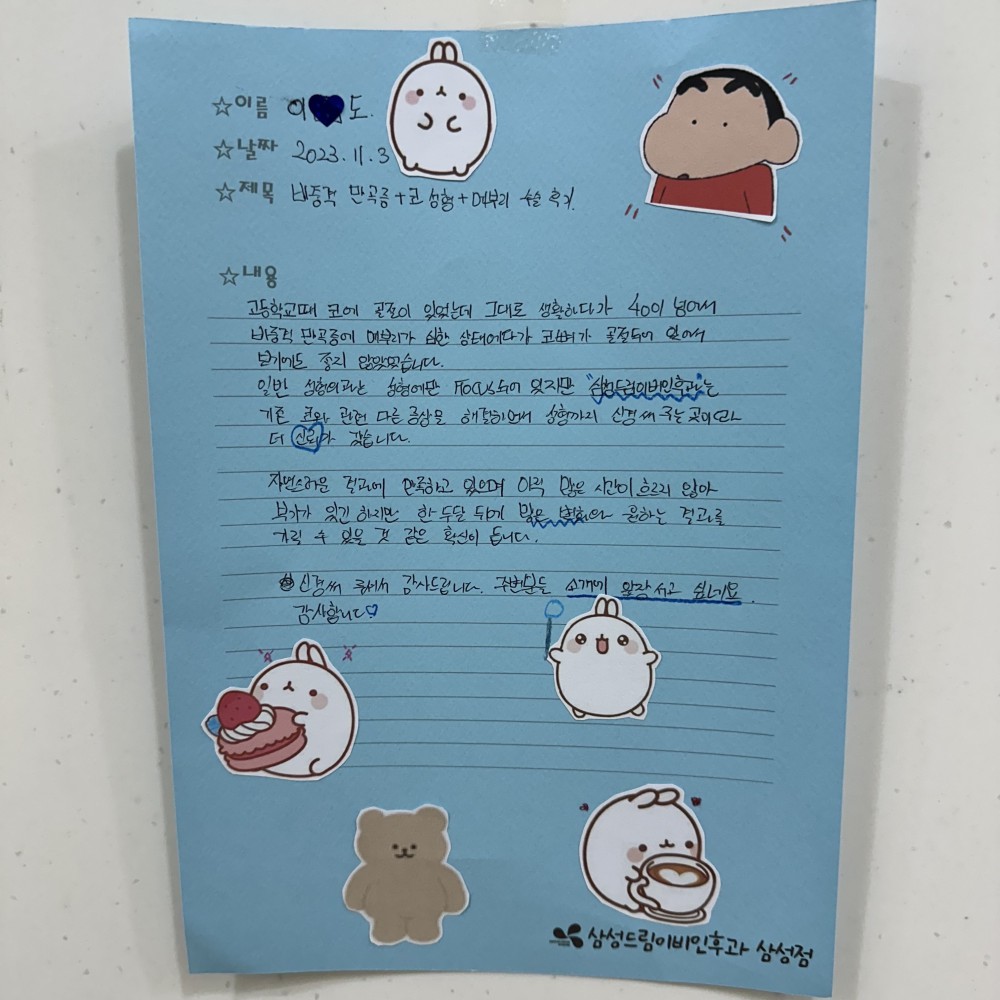 ☆이름 이♥도.
☆날짜 2023.11.3
☆제목 비중격 만곡증+코성형+매부리 수술 후기.
☆내용
고등학교때 코에 골절이 있었는데 그대로 생활하다가 40이 넘어서
비중격 만곡증에 매부리가 심한 상태에다가 코뼈가 골절되어 있어서
보기에도 좋지 않았었습니다.
일반 성형외과는 성형에만 FOCUS되어 있지만 "삼성드림이비인후과"는
기존 코와 관련 다른 증상을 해결하면서 성형까지 신경써 주는 곳이라
더 신뢰가 갔습니다.
자연스러운 결과에 만족하고 있으며 아직 많은 시간이 흐르지 않아
부기가 있긴 하지만 한 두달 뒤에 많은 변화와 원하는 결과를
가질 수 있을 것 같은 확신이 듭니다.
신경써 주셔서 감사드립니다. 주변분들 소개에 앞장서고 싶네요.
감사합니다♡
삼성드림이비인후과 삼성점